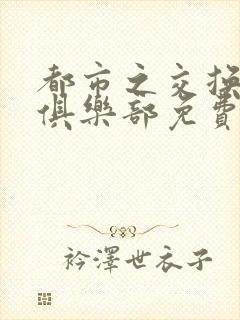 都市之交换
俱樂部免費
衿澤世衣子